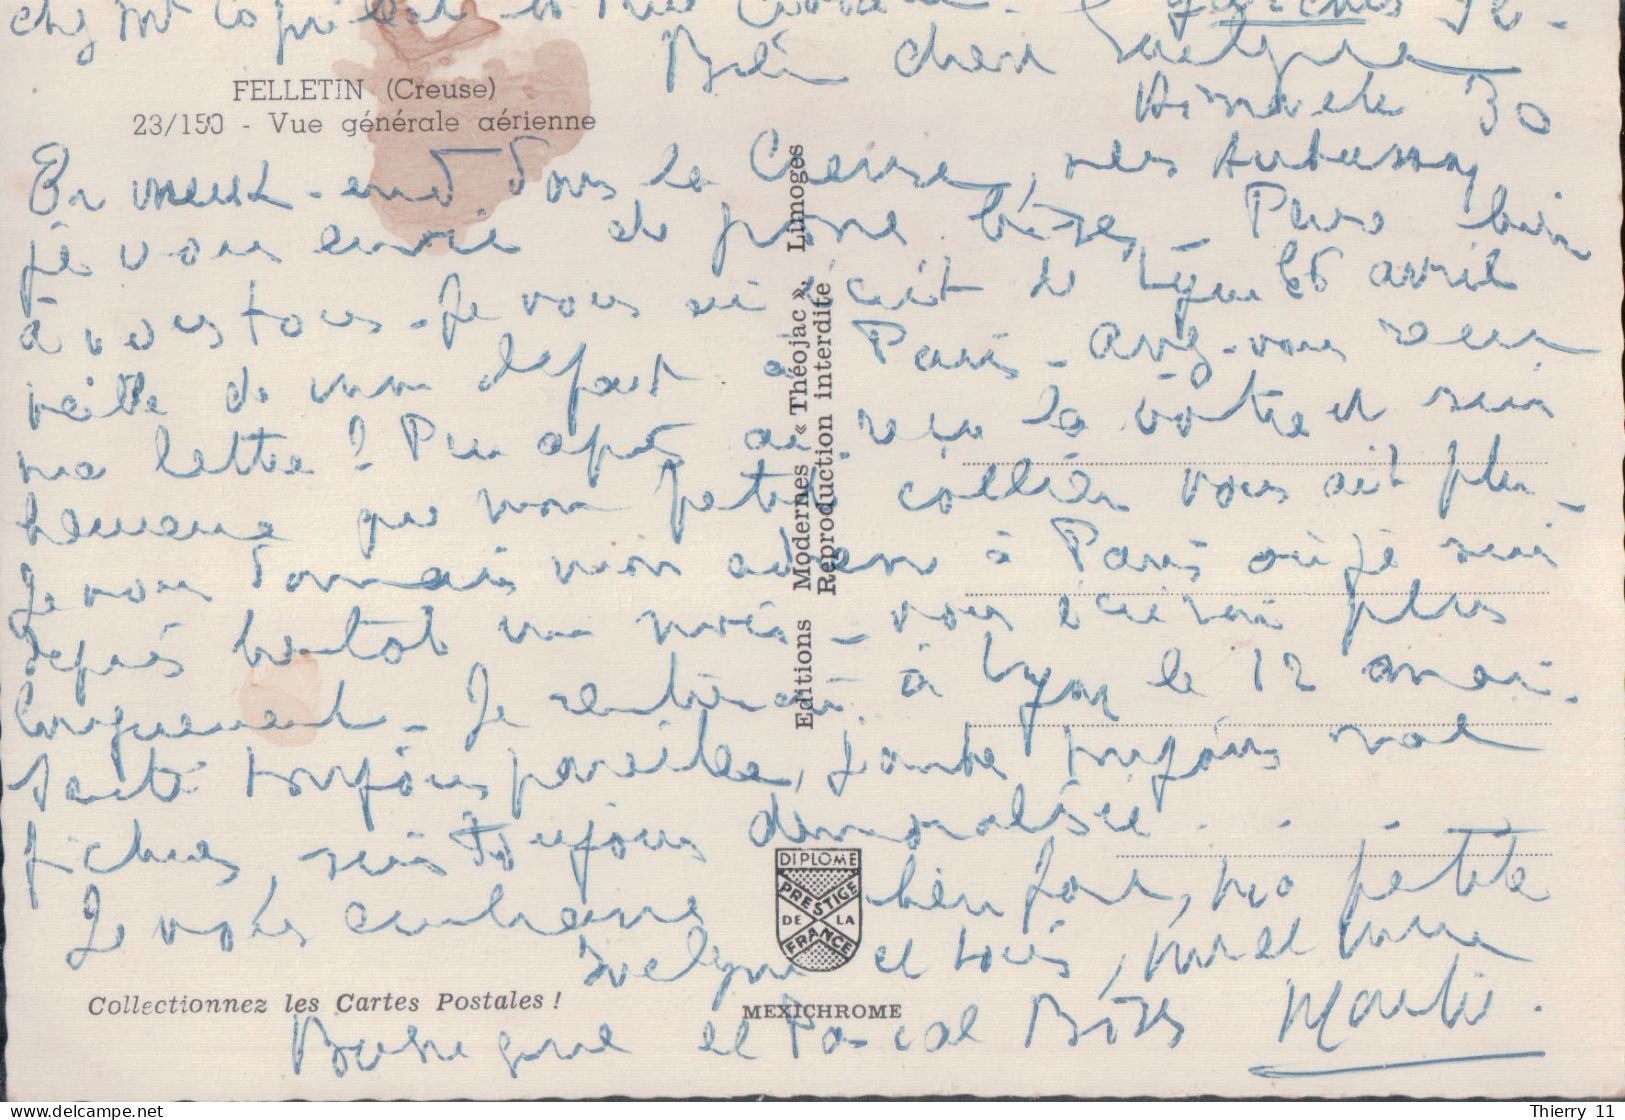 chez Mr
Bien chère Evelyne
Dimanche 30
FELLETIN (Creuse)
23/150 - Vue générale aérienne
En week-end dans la Creuse, vers Aubusson
je vous envoie de gros bises - Pense bien
à vous tous - Je vous ai écrit de Lyon 26 avril
veille de mon départ à Paris - Avez-vous reçu
ma lettre ? Peu après ai reçu la vôtre et suis
heureuse que mon petit collier vous ait plu -
Je vous donnais mon adresse à Paris où je suis
depuis bientôt un mois - vous écrirai plus
longuement - Je rentrerai à Lyon le 12
Santé toujours pareille, jambe toujours mal
fichue, suis toujours démoralisée.
Je vous embrasse bien fort, ma petite
Evelyne et tous,
et Pascal Bises
Editions Modernes « Théojac », Limoges
Reproduction interdite
DIPLOME
PRESTIGE
DE LA
FRANCE
Collectionnez les Cartes Postales !
MEXICHROME
Thierry 11